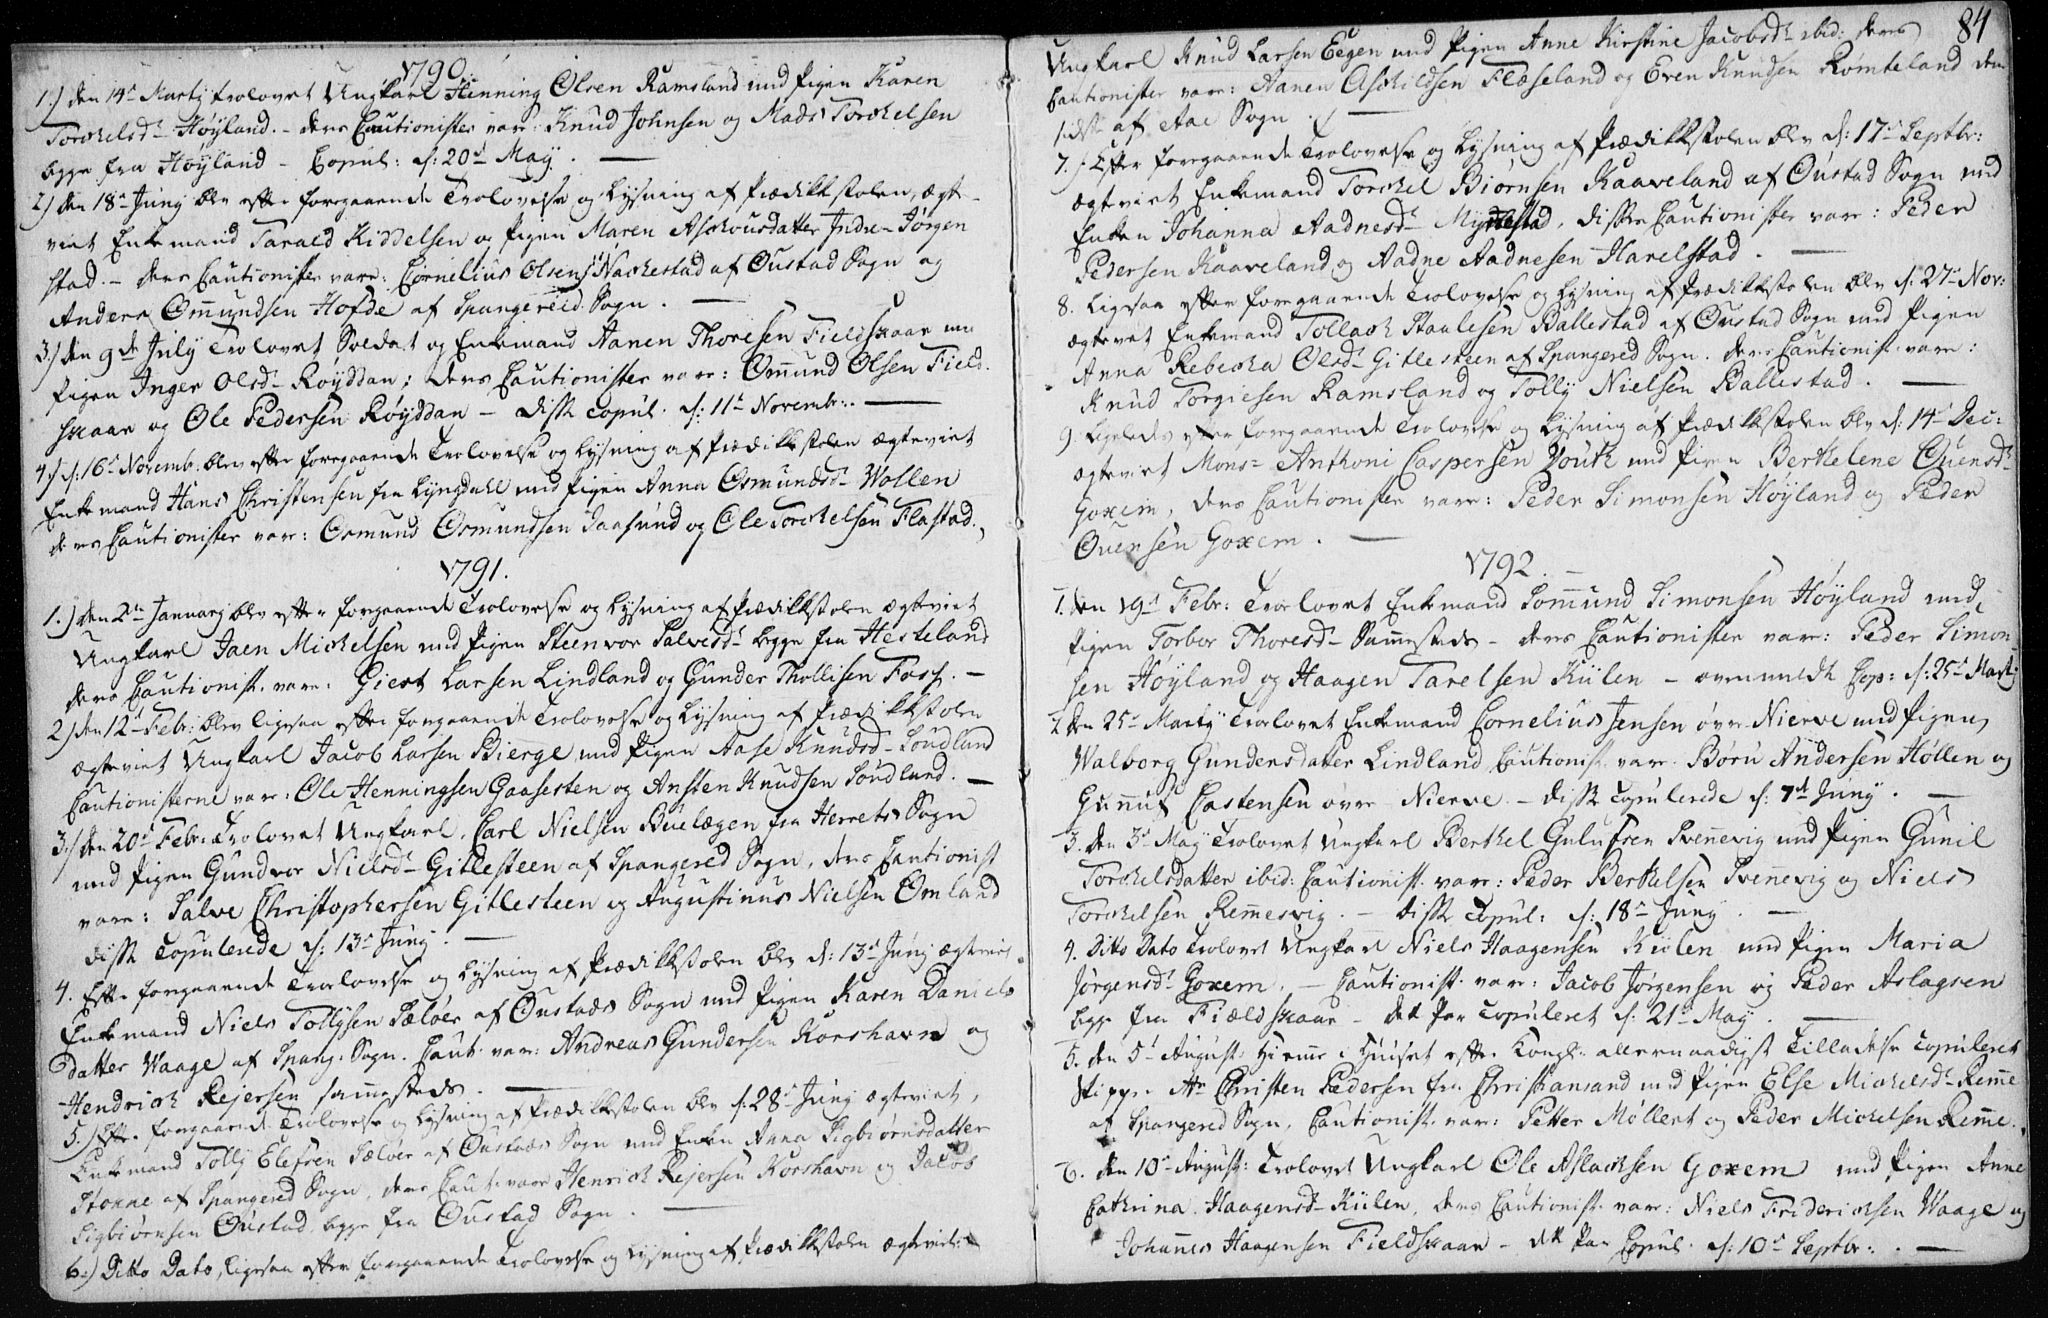 1790.
1.) den 14de Martij trolovet Ungkarl Henning Olsen Ramsland med Pigen Karen
Torkelsdr Høyland. - deres Cautionister var: Knud Johnsen og Mads Torkelsen
begge fra Høyland - Copul: d: 20de May. -
2.) den 18de Junij blev efter foregaaende Trolovelse og Lysning af Prædikkestolen, ægte-
viet Enkemand Tarald Kiddelsen og Pigen Maren Askousdatter Indre-Jørgen
stad. - deres Cautionister vare: Cornelius Olsen Naskestad af Oustad Sogn og
Anders Omundsen Hofde af Spangereid Sogn. -
3.) den 9de July Trolovet Soldat og Enkemand Aanen Thoresen Fieldskaar med
Pigen Inger Olsdr Røyddan; deres Cautionister vare: Omund Olsen Field-
skaar og Ole Pedersen Røyddan - disse copul. d: 11te Novembr: -
4.) d: 16de Novemb: blev efter foregaaende Trolovelse og Lysning af Prædikkestolen ægteviet
Enkemand Hans Christensen fra Lyngdahl med Pigen Anna Osmundsdr Wollen
deres Cautionister vare: Osmund Osmundsen Jaasund og Ole Torkelsen Flastad.,
1791.
1.) den 2den January blev efter foregaaende Trolovelse og Lysning af Prædikkestolen ægteviet
Ungkarl Jaen Mickelsen med Pigen Steenvor Salvesdr begge fra Hesteland
deres Cautionist. vare: Giert Larsen Lindland og Gunder Thollisen Foss. -
2.) den 12te Febr: blev ligesaa efter foregaaende Trolovelse og Lysning af Prædikkestolen
ægteviet Ungkarl Jacob Larsen Bierge med Pigen Aase Knudsdr Loudland
Cautionisterne vare: Ole Henningsen Gaasesten og Ansten Knudsen Loudland. -
3.) den 20de Febr: Trolovet Ungkarl, Carl Nielsen Buelægen fra Herrets Sogn
med Pigen Gundvor Nielsdr Gitlesteen af Spangereed Sogn, deres Cautionist
vare: Salve Christophersen Gitlesteen og Augustinus Nielsen Omland
disse Copulerede d: 13de Juny. -
4. Efter foregaaende Trolovelse og Lysning af Prædikkestolen blev d: 13de Junij ægteviet
Enkemand Niels Tollysen Sæløer af Oustads Sogn med Pigen Karen Daniels
datter Waage af Spang: Sogn. Caut. var: Andreas Gundersen Korshavn og
Hendrick Rejersen sammesteds. -
5.) Efter foregaaende Trolovelse og Lysning af Prædikkestolen blev d: 28de Junij ægteviet,
Enkemand Tolly Elefsen Sæløer af Oustads Sogn med Enken Anna Sigbiørnsdatter
Stokne af Spangereed Sogn, deres Caut: vare Henrick Rejersen Korshavn og Jacob
Sigbiørnsen Oustad begge fra Oustad Sogn. -
6.) Ditto Dato, ligesaa efter foregaaende Trolovelse og Lysning af Prædikkestolen ægteviet
84
Ungkarl Knud Larsen Eegen med Pigen Anne Kirstine Jacobsdr ibid: deres
Cautionister vare: Aanen Askildsen Flaaseland og Even Knudsen Romteland den
sidste af Aae Sogn. -
7.) Efter foregaaende Trolovelse og Lysning af Prædikkestolen blev d: 17de Septbr:
ægteviet Enkemand Torckel Biørnsen Kaaveland af Oustad Sogn med
Enken Johanna Aadnesdr Myrestad, disses Cautionister vare: Peder
Pedersen Kaaveland og Aadne Aadnesen Harelstad. -
8. Ligesaa efter foregaaende Trolovelse og Lysning af Prædikkestolen blev d. 27de Nov:
ægteviet Enkemand Tollack Staalesen Ballestad af Oustad Sogn med Pigen
Anna Rebecka Olsdr Gitlesteen af Spangereed Sogn. deres Cautionist. vare:
Knud Torgiesen Ramsland og Tolly Nielsen Ballestad. -
9. Ligeledes efter foregaaende Trolovelse og Lysning af Prædikkestolen blev d: 14de Dec:
ægteviet Monsr Anthoni Caspersen Youth med Pigen Berthelene Ouensdr
Goxem, deres Cautionister vare: Peder Simonsen Høyland og Peder
Ouensen Goxem. -
1792.
1. den 19de Febr: Trolovet Enkemand Sommund Simonsen Høyland med
Pigen Torbor Thoresdr Sammesteds - deres Cautionister vare: Peder Simon-
sen Høyland og Haagen Tarelsen Kiilen - ovenmeldte Cop: d: 25de Martij
2. den 25de Martij Trolovet Enkemand Cornelius Jensen øvre Nierve med Pigen
Walborg Gundersdatter Lindland Cautionist. var. Børu Andersen Høllen og
Gunnuf Castensen øvre Nierve - disse copulerede d: 7de Juny. -
3. den 3de May Trolovet Ungkarl Berthel Gulufsen Svennevig med Pigen Gunil
Torckelsdatter ibid: Cautionist. vare: Peder Berthelsen Svennevig og Niels
Torckelsen Remmesvig. - disse Copul: d: 18de Juny. -
4. Ditto Dato Trolovet Ungkarl Niels Haagensen Kiølen med Pigen Maria
Jørgensdr Goxem. - Cautionist. var: Jacob Jørgensen og Peder Aslagsen
begge fra Fiældskaar - dette Par Copuleret d: 21de May. -
5. den 5te August: Hiemme i Huuset efter Kongl: allernaadigst Tilladelse Copuleret
Skipper Hr Christen Pedersen fra Christiansand med Pigen Else Mickelsdr Remme
af Spangereed Sogn, Cautionist. var: Petter Møllert og Peder Mickelsen Remme.
6. den 10de August: Trolovet Ungkarl Ole Aslacksen Goxem med Pigen Anne
Cathrina Haagensdr Kiilen, deres Cautionist. vare: Niels Friderichsen Waage og
Johannes Haagensen Fieldskaar - dette Par Copul. d: 10de Septbr: . -